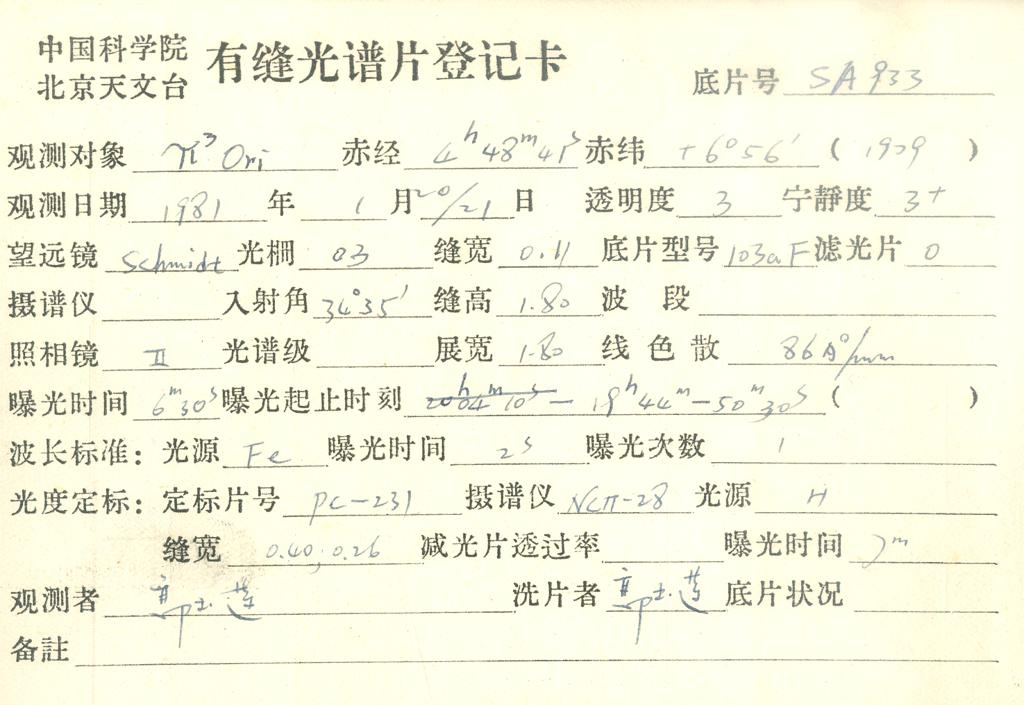 中国科学院
北京天文台
有缝光谱片登记卡
底片号 SA933
观测对象 π³ Ori 赤经 4ʰ48ᵐ41ˢ 赤纬 +6°56′ (1959)
观测日期 1981 年 1 月 20/21 日 透明度 3 宁静度 3+
望远镜 Schmidt 光栅 03 缝宽 0.11 底片型号 103aF 滤光片 0
摄谱仪 入射角 34°35′ 缝高 1.80 波段
照相镜 II 光谱级 展宽 1.80 线色散 86A°/mm
曝光时间 6ᵐ30ˢ 曝光起止时刻 19ʰ44ᵐ-50ᵐ30ˢ ( )
波长标准: 光源 Fe 曝光时间 2ˢ 曝光次数 1
光度定标: 定标片号 PC-231 摄谱仪 光源 H
缝宽 0.40;0.26 减光片透过率 曝光时间
观测者 洗片者 底片状况
备註